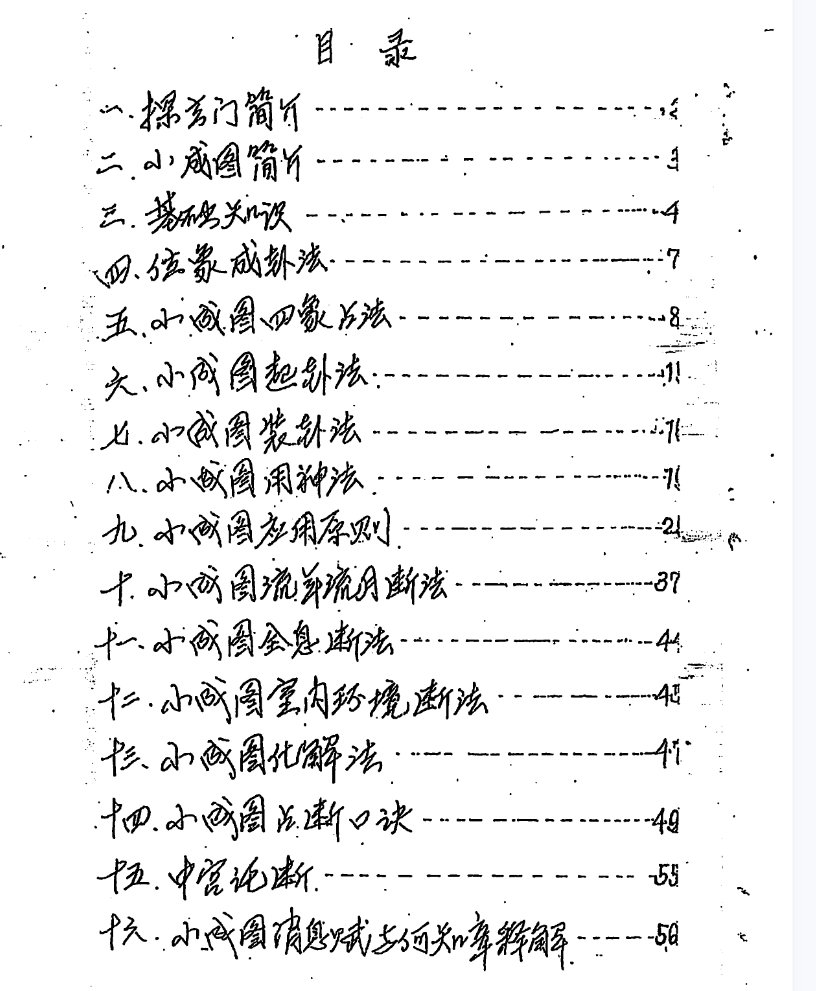 目录
一.探玄门简介 2
二.小成图简介 3
三.基础知识 4
四、位象成卦法 7
五、小成图四象占法 8
六、小成图起卦法
七、小成图装卦法
八、小成图用神法
九、小成图应用原则
十、小成图流年流月断法 37
十一、小成图全息断法
十二、小成图室内环境断法
十三、小成图化解法
十四.小成图占断口诀 49
十五.中宫论断 55
十六.小成图消息赋与何知章释解 56